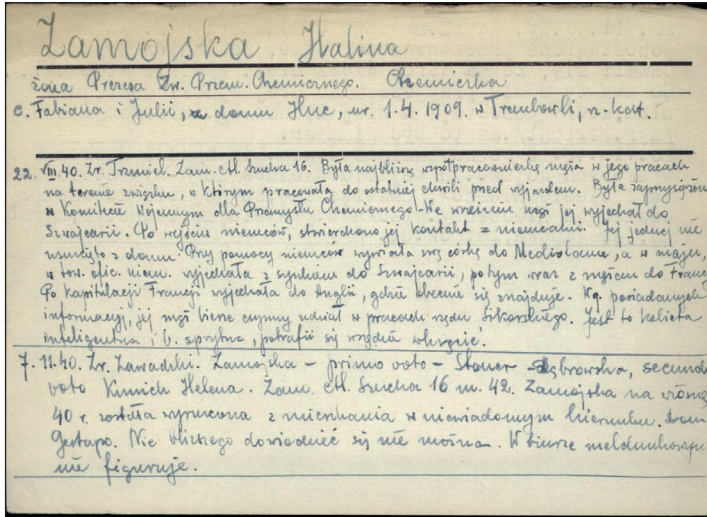 Zamojska Halina
żona Prezesa Zw. Przem. Chemicznego. Chemiczka
c. Fabiana i Julii, z domu Huc, ur. 1.4.1909. w Trembowli, rz.-kat.
22.VIII.40. Zr. Trzmiel. Zam. Al. Szucha 16. Była najbliższą współpracowniczką męża w jego pracach
na terenie związku, w którym pracowała do ostatniej chwili przed wyjazdem. Była zaprzysiężona
w Komitecie Wojennym dla Przemysłu Chemicznego. We wrześniu mąż jej wyjechał do
Szwajcarii. Po wejściu niemców, stwierdzono jej kontakt z niemcami. Jej jednej nie
usunięto z domu. Przy pomocy niemców wysłała swą córkę do Mediolanu, a w maju,
w tow. ofic. niem. wyjechała z synkiem do Szwajcarii, potym wraz z mężem do Francji
Po kapitulacji Francji wyjechała do Anglii, gdzie obecnie się znajduje. Wg. posiadanych
informacyj, jej mąż bierze czynny udział w pracach rządu Sikorskiego. Jest to kobieta
inteligentna i b. sprytna, potrafi się wszędzie wkręcić.
7.11.40. Zr. Zawadzki. Zamojska – primo voto – Dąbrowska, secundo
voto Kimich Helena. Zam. Al. Szucha 16 m. 42. Zamojska na wiosnę
40 r. została wyrzucona z mieszkania w niewiadomym kierunku. Dom
Gestapo. Nic bliższego dowiedzieć się nie można. W biurze meldunkowym
nie figuruje.